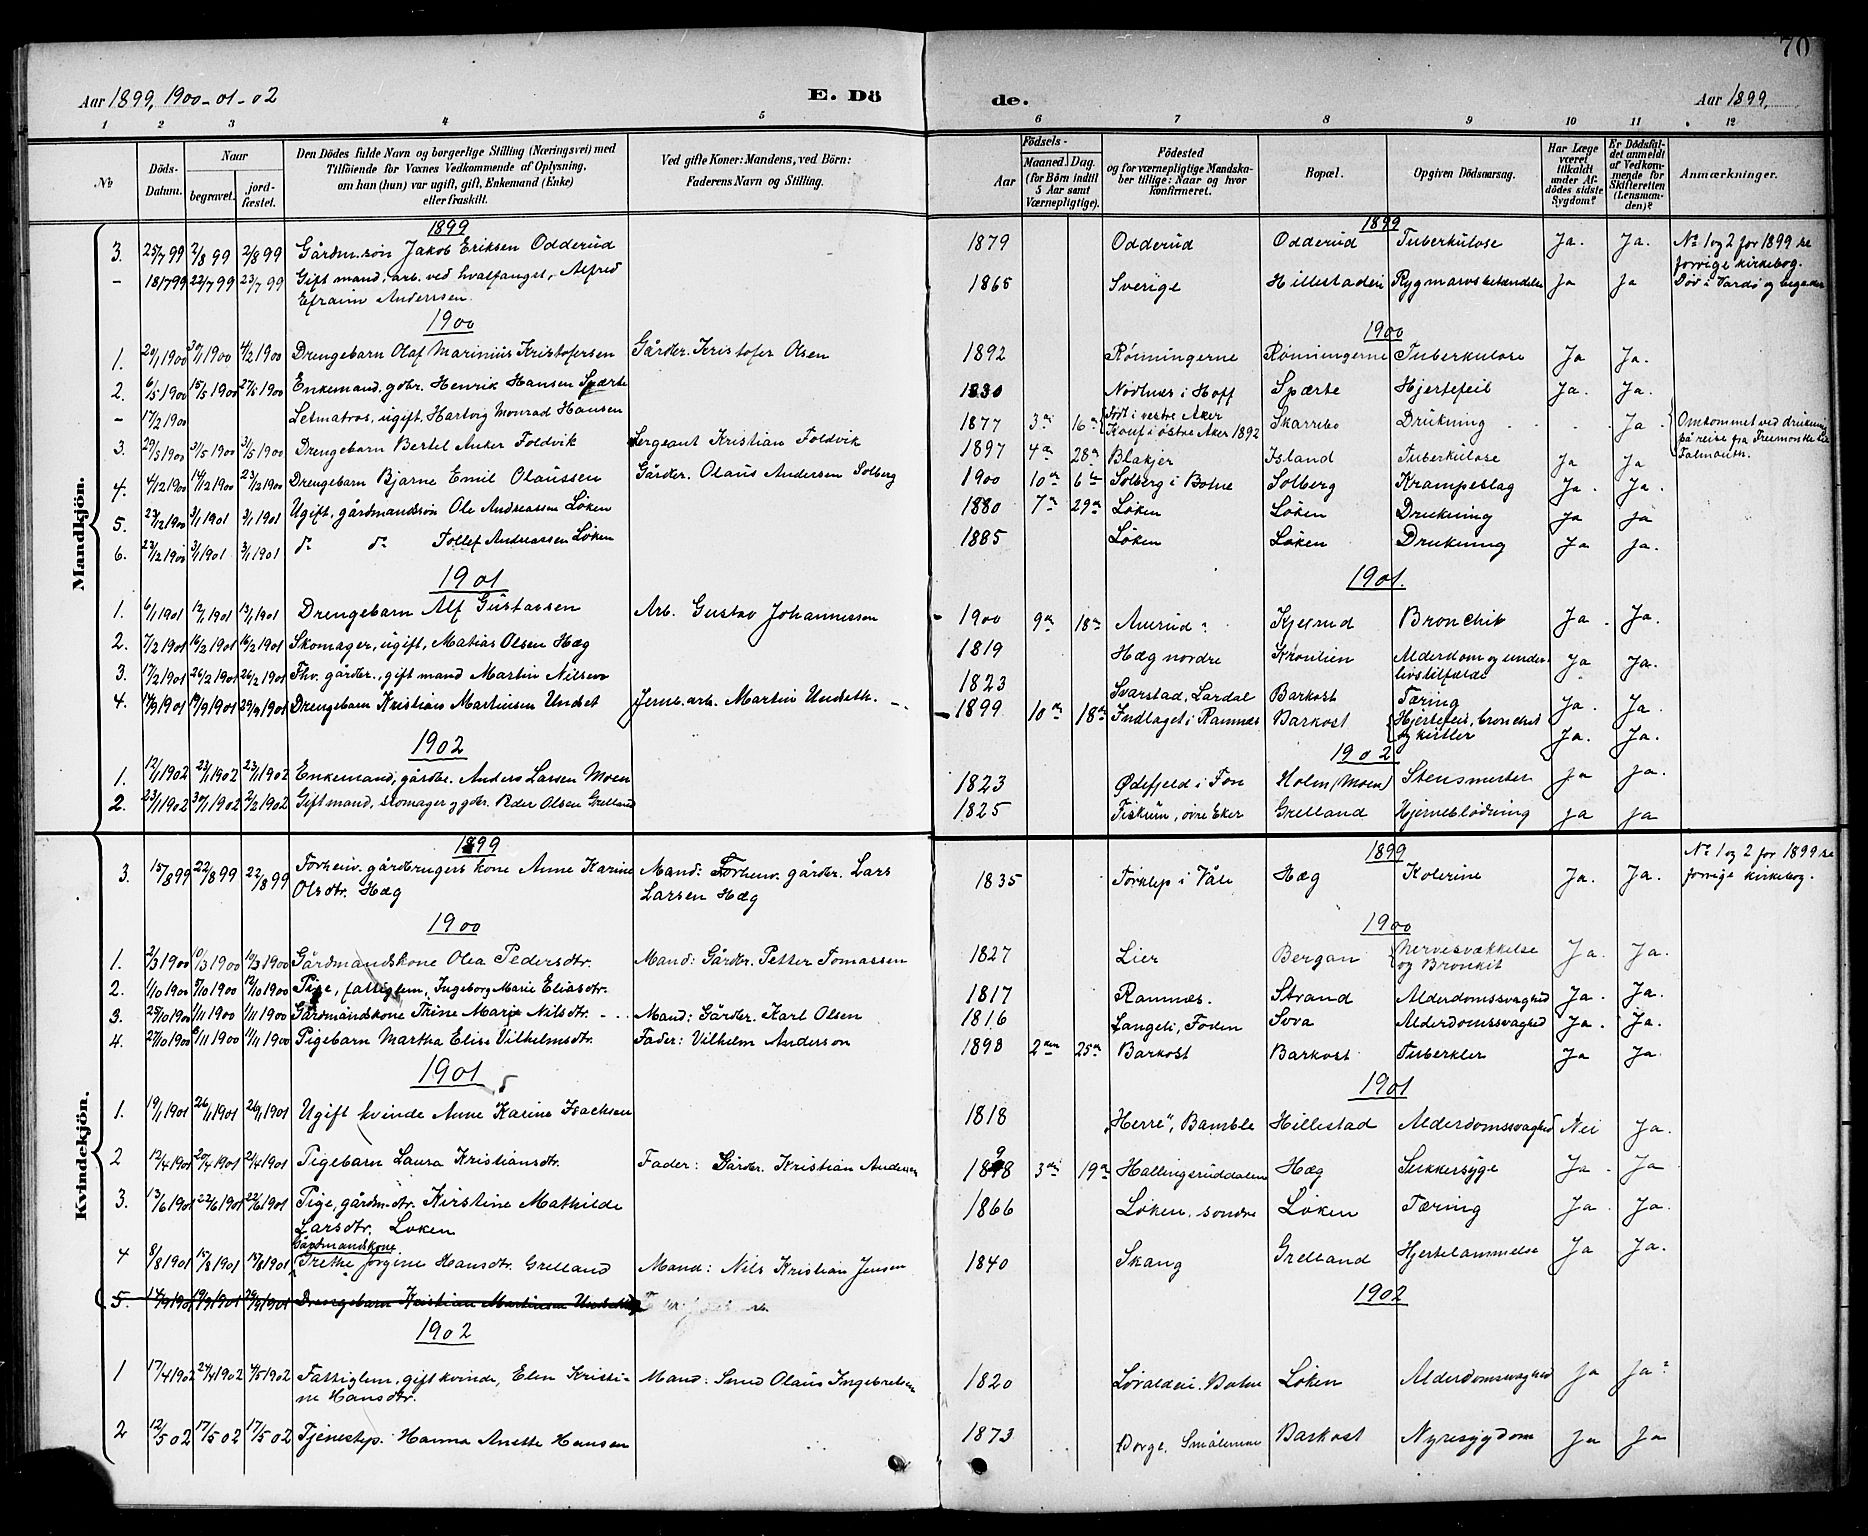 70
Aar 1899, 1900-01-02 E. Dö de. Aar 1899,
1 2 3 4 5 6 7 8 9 10 11 12
№ Döds-Datum. Naar begravet. jord-fæstet. Den Dödes fulde Navn og borgerlige Stilling (Næringsvei) med Tilföiende for Voxnes Vedkommende af Oplysning, om han (hun) var ugift, gift, Enkemand (Enke) eller fraskilt. Ved gifte Koner: Mandens, ved Börn: Faderens Navn og Stilling. Födsels- Aar Maaned. Dag. (for Börn indtil 5 Aar samt Værnepligtige). Födested og for værnepligtige Mandskaber tillige: Naar og hvor konfirmeret. Bopæl. Opgiven Dödsaarsag. Har Læge været tilkaldt under Afdödes sidste Sygdom? Er Dödsfaldet anmeldt af Vedkommende for Skifteretten (Lensmanden)? Anmærkninger.
Mandkjön.
1899 1899
3. 25/7 99 2/8 99 2/8 99 Gårdm.søn Jakob Eriksen Odderud 1879 Odderud Odderud Tuberkulose Ja. Ja. No 1 og 2 for 1899 se forrige kirkebog.
- 18/7 99 22/7 99 23/7 99 Gift mand, arb. ved hvalfanget, Alfred Efraim Andersen. 1865 Sverige Hillestadeie Rygmarvsbetændelse Ja Ja Død i Vardø og begravet
1900 1900
1. 20/1 1900 30/1 1900 4/2 1900 Drengebarn Olaf Marinius Kristofersen Gårdbr. Kristofer Olsen 1892 Rønningerne Rønningerne Tuberkulose Ja Ja.
2. 6/5 1900 15/5 1900 27/5 1900 Enkemand, gdbr. Henrik Hansen Spærte 1830 Nødlnes i Hoff Spærte Hjertefeil Ja. Ja.
- 17/2 1900 Letmatros, ugift, Hartvig Monrad Hansen 1877 3 di 16 de Født i vestre Aker Konf i østre Aker 1892 Skarrebo Drukning Ja. Omkommet ved drukning på reise fra Freemontle til Falmouth.
3. 29/5 1900 3/5 1900 3/5 1900 Drengebarn Bertel Anker Foldvik Sergeant Kristian Foldvik 1897 4 de 28 de Blakjer Island Tuberkulose Ja Ja
4. 4/12 1900 14/12 1900 23/12 1900 Drengebarn Bjarne Emil Olaussen Gårdbr. Olaus Andersen Solberg 1900 10 de 6 te Solberg i Botne Solberg Krampeslag Ja. Ja.
5. 23/12 1900 3/1 1901 3/1 1901 Ugift, gårdmandssøn Ole Andreassen Løken 1880 7 de 29 de Løken Løken Drukning Ja Ja
6. 23/12 1900 3/1 1901 3/1 1901 do do Tollef Andreassen Løken 1885 Løken Løken Drukning Ja Ja.
1901 1901.
1. 6/1 1901 12/1 1901 13/1 1901 Drengebarn Alf Gustavsen Arb. Gustav Johannessen 1900 9 de 18 de Amrud Kjelrud Bronchit Ja. Ja.
2. 7/2 1901 16/2 1901 16/2 1901 Skomager, ugift, Matias Olsen Hæg 1819 Hæg nordre Krønlien Alderdom og underlivstilfælde Ja. Ja.
3. 17/2 1901 26/2 1901 26/2 1901 Fhv. gårdbr., gift mand Martin Nilsen 1823 Svarstad, Lardal Barkost Tæring Ja. Ja.
4. 14/9 1901 19/9 1901 29/9 1901 Drengebarn Kristian Martinsen Undset Jernb.arb. Martin Undseth. 1899 10 de 18 de Indlaget i Ramnes Barkost Hjertefeil, bronchit og kirtler Ja. Ja.
1902 1902
1. 12/1 1902 23/1 1902 23/1 1902 Enkemand, gårdbr. Anders Larsen Moen 1823 Ødefjeld i Fon Holm (Moen) Stensmerter Ja Ja.
2. 23/1 1902 30/1 1902 2/2 1902 Gift mand, skomager og gdbr. Peder Olsen Grelland 1825 Fiskum, øvre Eker Grelland Hjerneblødning Ja Ja
Kvindekjön.
1899 1899
3. 15/8 99 22/8 99 22/8 99 Forhenv. gårdbrugers kone Anne Karine Olsdtr. Hæg Mand: Forhenv. gårdbr. Lars Larsen Hæg 1835 Torklep i Våle Hæg Kolerine Ja. Ja. No 1 og 2 for 1899 se forrige kirkebog.
1900 1900
1. 2/3 1900 10/3 1900 10/3 1900 Gårdmandskone Olea Pedersdtr. Mand: Gårdbr. Petter Tomassen 1827 Lier Bergan Nervesvækkelse og Bronkit Ja. Ja.
2. 1/10 1900 9/10 1900 12/10 1900 Pige, fattiglem, Ingeborg Marie Eliasdtr. 1817 Ramnes. Strand Alderdomssvaghed Ja. Ja.
3. 25/10 1900 1/11 1900 1/11 1900 Gårdmandskone Trine Marie Nilsdtr. Mand: Gårdbr. Karl Olsen 1816 Langeli, Foden Sova Alderdomssvaghed Ja. Ja.
4. 27/10 1900 6/11 1900 11/11 1900 Pigebarn Martha Elise Vilhelmsdtr. Fader: Vilhelm Anderson 1898 2 den 25 de Barkost Barkost Tuberkler Ja Ja.
1901 1901
1. 19/1 1901 26/1 1901 26/1 1901 Ugift kvinde Anne Karine Isachsen 1818 "Herre", Bamble Hillestad Alderdomssvaghed Nei Ja.
2 12/4 1901 20/4 1901 21/4 1901 Pigebarn Laura Kristiansdtr. Fader: Gårdbr. Kristian Andersen 1898 3 di 19 de Hallingsruddalen Hæg Sukkersyge Ja. Ja
3. 13/6 1901 22/6 1901 22/6 1901 Pige, gårdm.dtr. Kirstine Mathilde Larsdtr. Løken 1866 Løken søndre Løken Tæring Ja. Ja.
4 8/8 1901 15/8 1901 15/8 1901 Gårdmandskone Grethe Jørgine Hansdtr. Grelland Mand: Nils Kristian Jensen 1840 Skang Grelland Hjertelammelse Ja Ja.
5. 14/9 1901 19/9 1901 29/9 1901 Drengebarn Kristian Martinsen Undset
1902 1902
1 17/4 1902 24/4 1902 4/5 1902 Fattiglem, gift kvinde, Elen Kristine Hansdtr. Mand: Smed Olaus Ingebretsen 1820 Løvaldeie. Botne Løken Alderdomssvaghed Ja Ja
2 12/5 02 17/5 02 17/5 02 Tjenestep. Hanna Anette Hansen 1873 Borge. Smålenene Barkost Nyresygdom Ja Ja